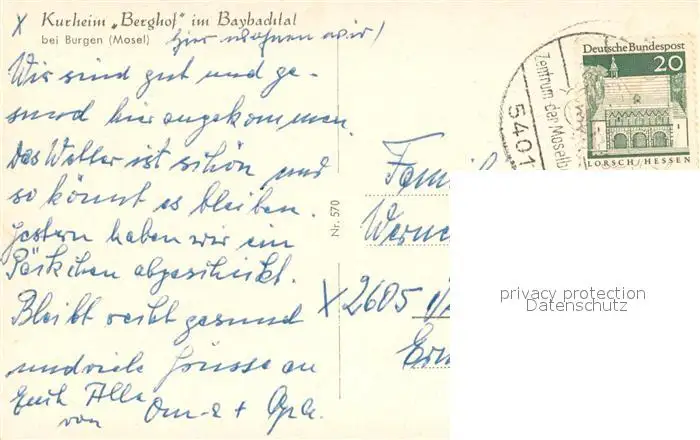 x Kurheim „Berghof" im Baybachtal
bei Burgen (Mosel) hier wohnen wir!
Wir sind gut und ge-
sund hier angekommen.
Das Wetter ist schön und
so könnt es bleiben.
Gestern haben wir ein
Päckchen abgeschickt.
Bleibt recht gesund
und viele Grüsse an
Euch Alle
von Oma + Opa.
Nr. 570
Famil
Werne
x 2605
Deutsche Bundespost
20
LORSCH/HESSEN
5401
Zentrum der Moselb
privacy protection
Datenschutz